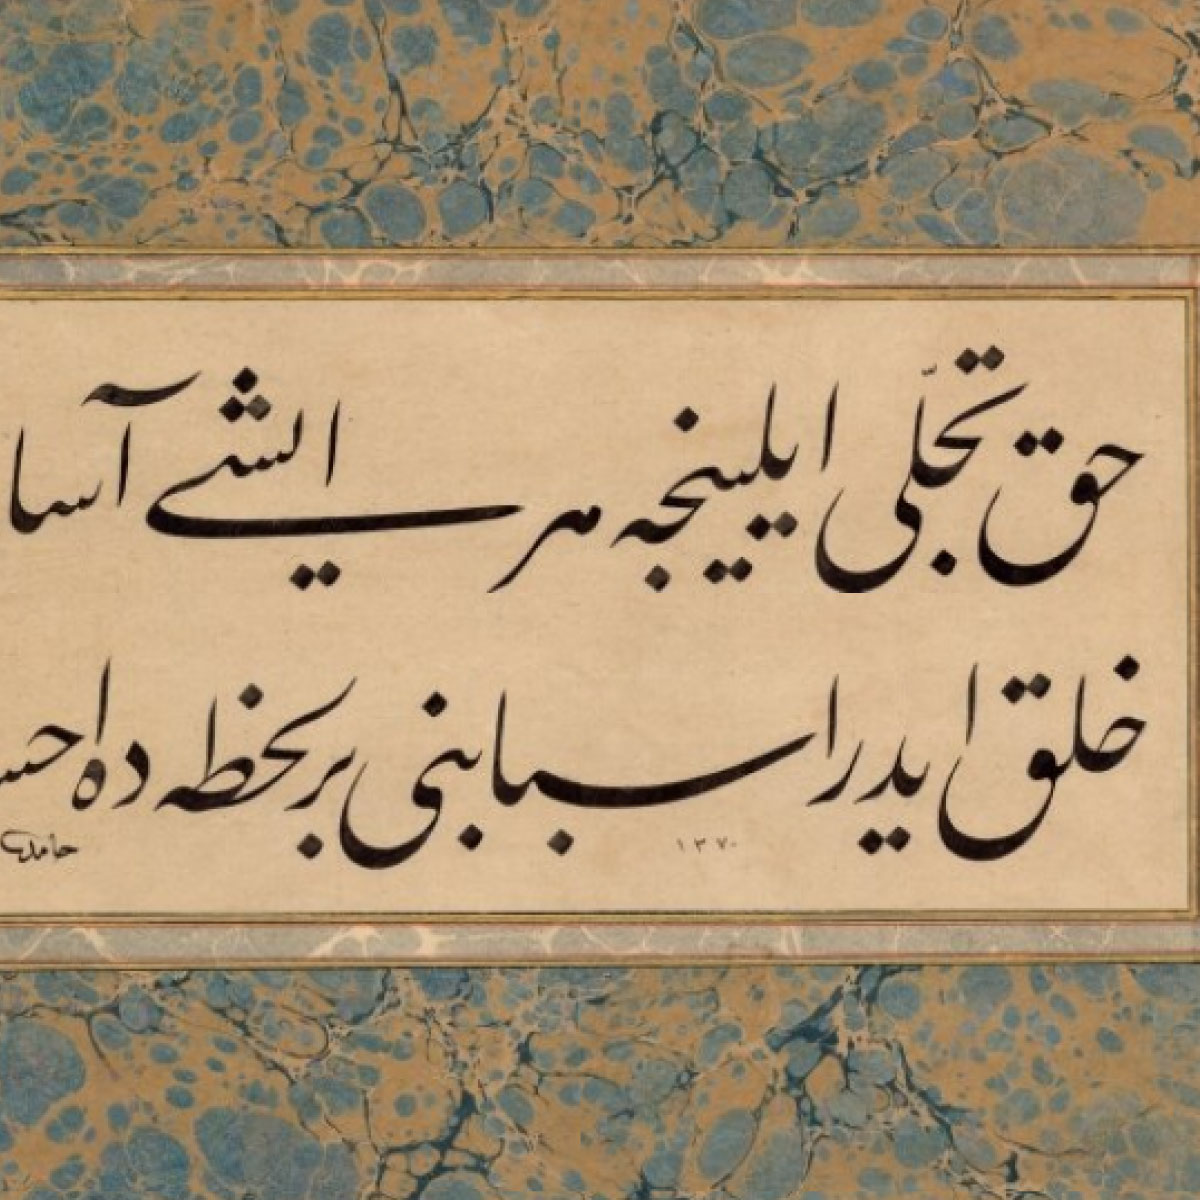 حق تجلّی ایلینجه هر ایشی آسا
خلق ایدر اسبابنی بر لحظه ده احسـ
١٣٧٠
حامد